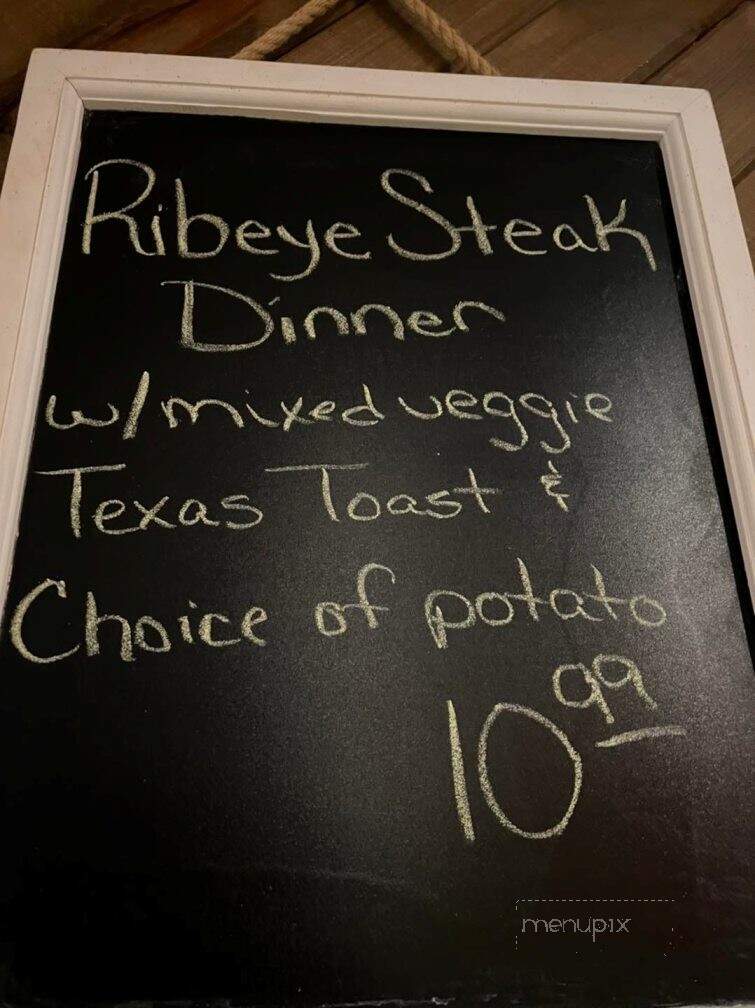 Ribeye Steak
Dinner
w/mixed veggie
Texas Toast &
Choice of potato
10.99
menupix